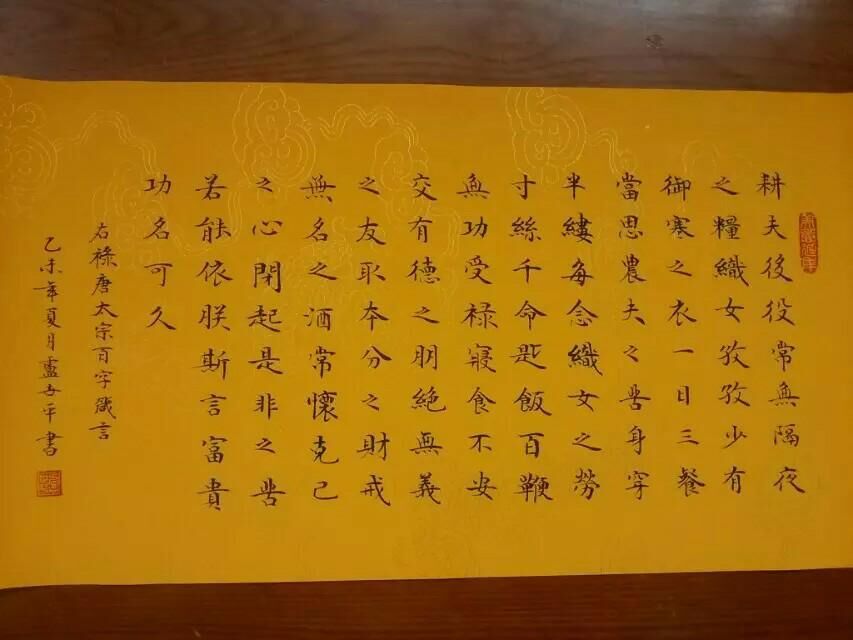 耕夫後役常無隔夜
之糧織女孜孜少有
御寒之衣一日三餐
當思農夫之苦身穿
半縷每念織女之勞
寸絲千命匙飯百鞭
無功受祿寢食不安
交有德之朋絕無義
之友取本分之財戒
無名之酒常懷克己
之心閉起是非之苦
若能依朕斯言富貴
功名可久
右祿唐太宗百字箴言
乙未年夏月盧平書